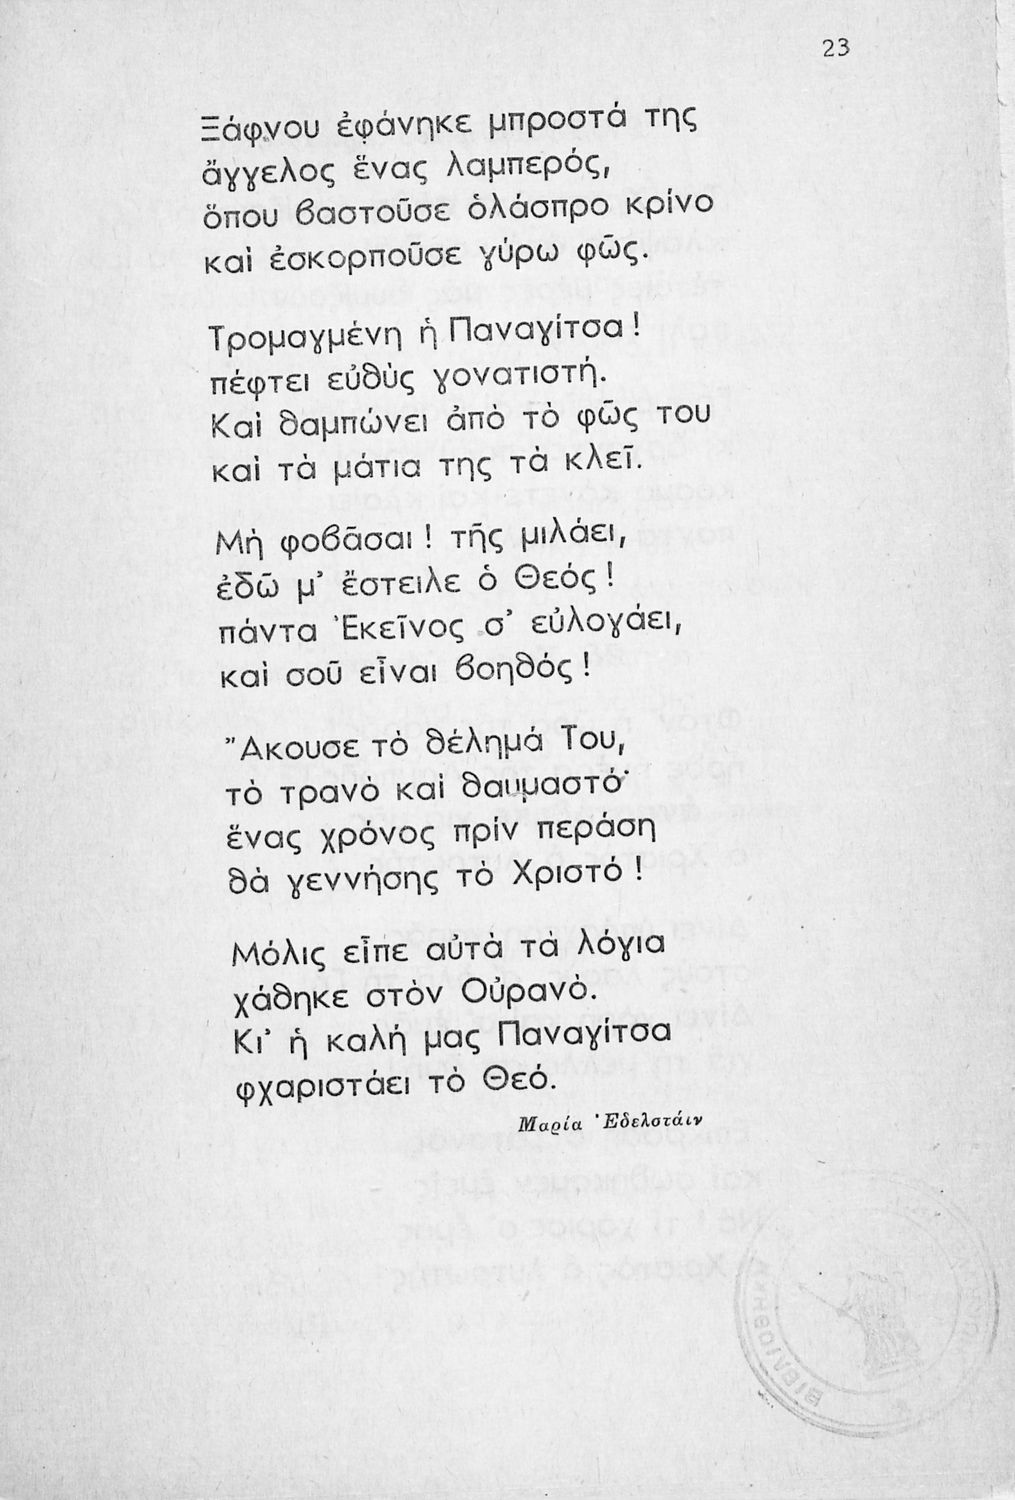 23
Ξάφνου ἐφάνηκε μπροστά της
ἄγγελος ἕνας λαμπερός,
ὅπου βαστοῦσε ὁλάσπρο κρίνο
καὶ ἐσκορποῦσε γύρω φῶς.
Τρομαγμένη ἡ Παναγίτσα!
πέφτει εὐθὺς γονατιστή.
Καὶ θαμπώνει ἀπὸ τὸ φῶς του
καὶ τὰ μάτια της τὰ κλεῖ.
Μὴ φοβᾶσαι! τῆς μιλάει,
ἐδῶ μ' ἔστειλε ὁ Θεός!
πάντα Ἐκεῖνος σ' εὐλογάει,
καὶ σοῦ εἶναι βοηθός!
Ἄκουσε τὸ θέλημά Του,
τὸ τρανὸ καὶ θαυμαστό·
ἕνας χρόνος πρίν περάση
θὰ γεννήσης τὸ Χριστό!
Μόλις εἶπε αὐτὰ τὰ λόγια
χάθηκε στὸν Οὐρανὸ.
Κι' ἡ καλή μας Παναγίτσα
φχαριστάει τὸ Θεό.
Μαρία Ἐδελστάιν
ΒΙΒΛΙΟΘΗΚΗ